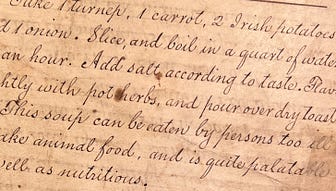 Take 1 turnep, 1 carrot, 2 Irish potatoes
d 1 onion. Slice, and boil in a quart of water
an hour. Add salt, according to taste. Flav
htly with pot herbs, and pour over dry toast
This soup can be eaten by persons too ill
ake animal food, and is quite palatable
well as nutritious.